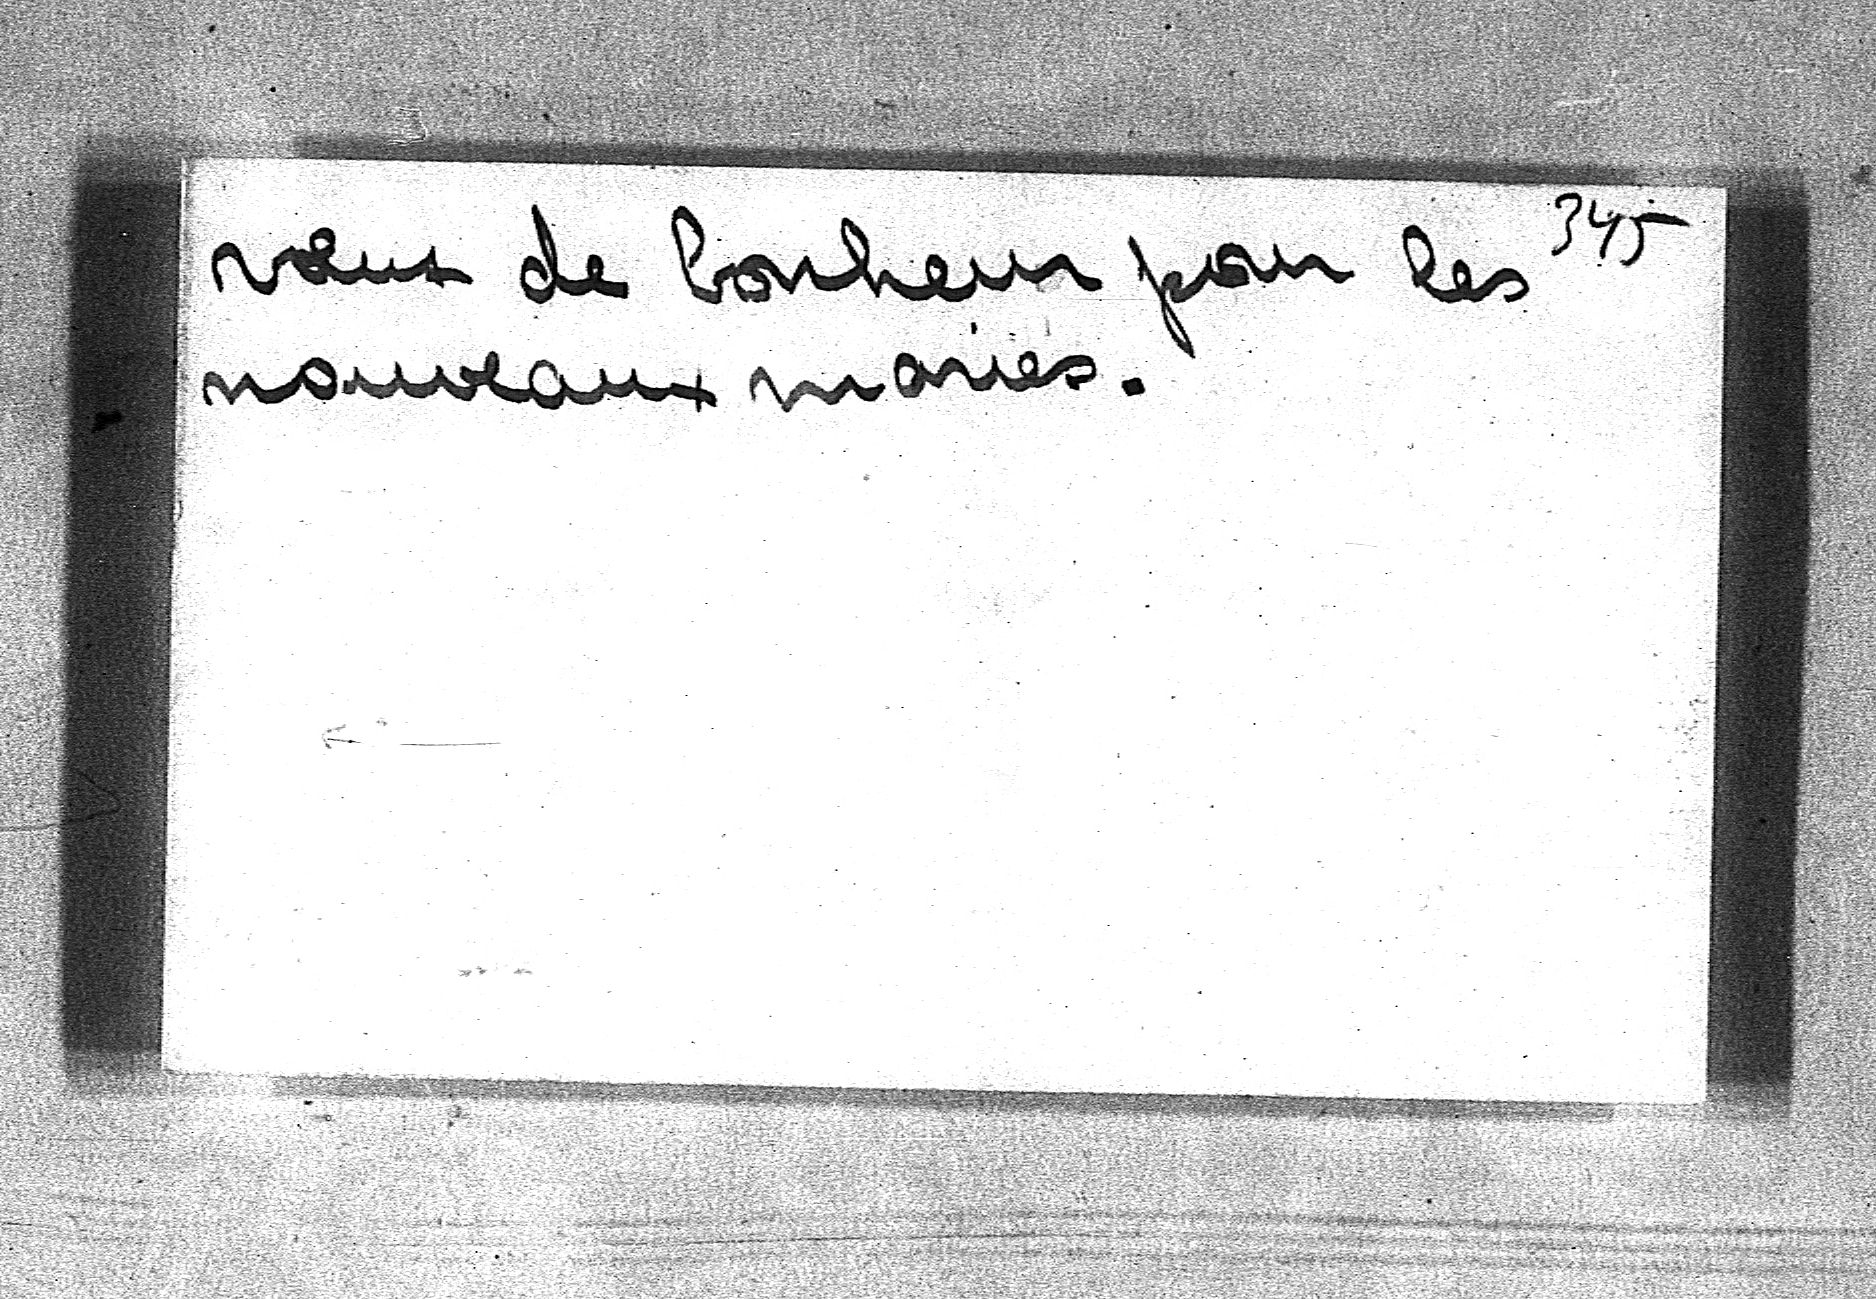 vœux de bonheur pour les 345
nouveaux mariés.